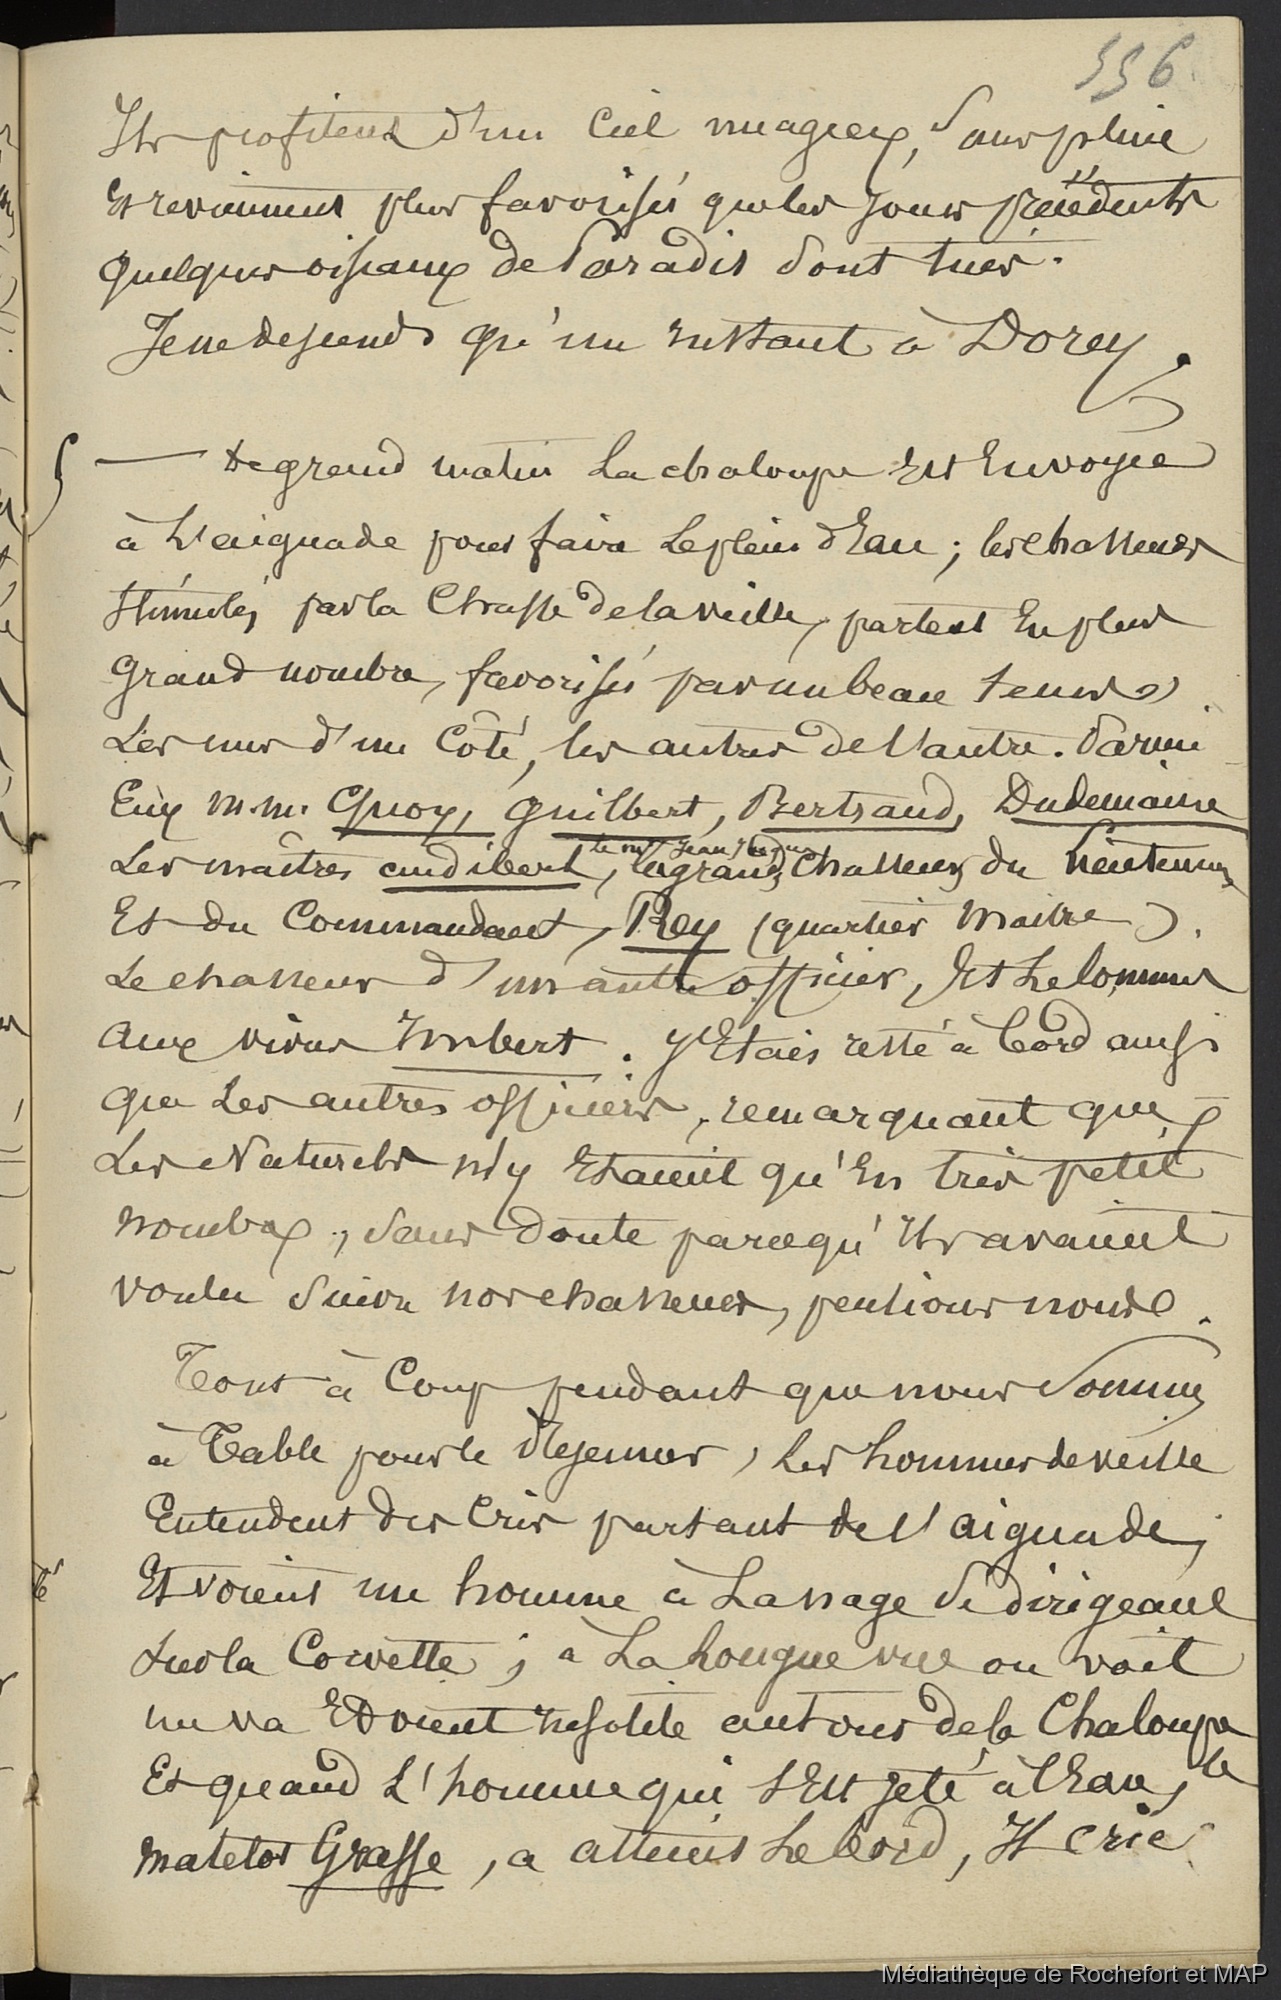 556.
Ils profitent d'un Ciel nuageux, Sans pluie
Et reviennent plus favorisés que les jours précédents
quelques oiseaux de Paradis Sont tués.
Je ne descends qu'un instant à Dorey.
5 — De grand matin la chaloupe Est Envoyée
à L'aiguade pour faire Le plein d'Eau ; les chasseurs
Stimulés par la Chasse de la veille, partent En plus
grand nombre, favorisés par un beau temps
Les uns d'un Côté, les autres de l'autre. Parmi
Eux M.M. Quoy, Guilbert, Bertrand, Dudemaine
Les maîtres audibert, Legrand, Chasseurs du Lieutenant
Et du Commandant, Rey (quartier Maître).
Le chasseur d'un autre officier, Et Le Commis
aux vivres Imbert. J'Etais resté à bord ainsi
que Les autres officiers, remarquant que
Les Naturels n'y Etaient qu'En très petit
nombre, Sans doute parcequ'Ils avaient
voulu Suivre nos chasseurs, pensions nous.
Tout à Coup pendant que nous Sommes
à Table pour le déjeuner, Les hommes de veille
Entendent des Cris partant de l'aiguade,
Et voient un homme à La nage Se dirigeant
Sur la Corvette ; à La longue vue on voit
un va Et vient insolite autour de la Chaloupe
Et quand L'homme qui s'Est jeté à l'Eau, le
matelot Grasse, a atteint Le bord, Il crie
Médiathèque de Rochefort et MAP